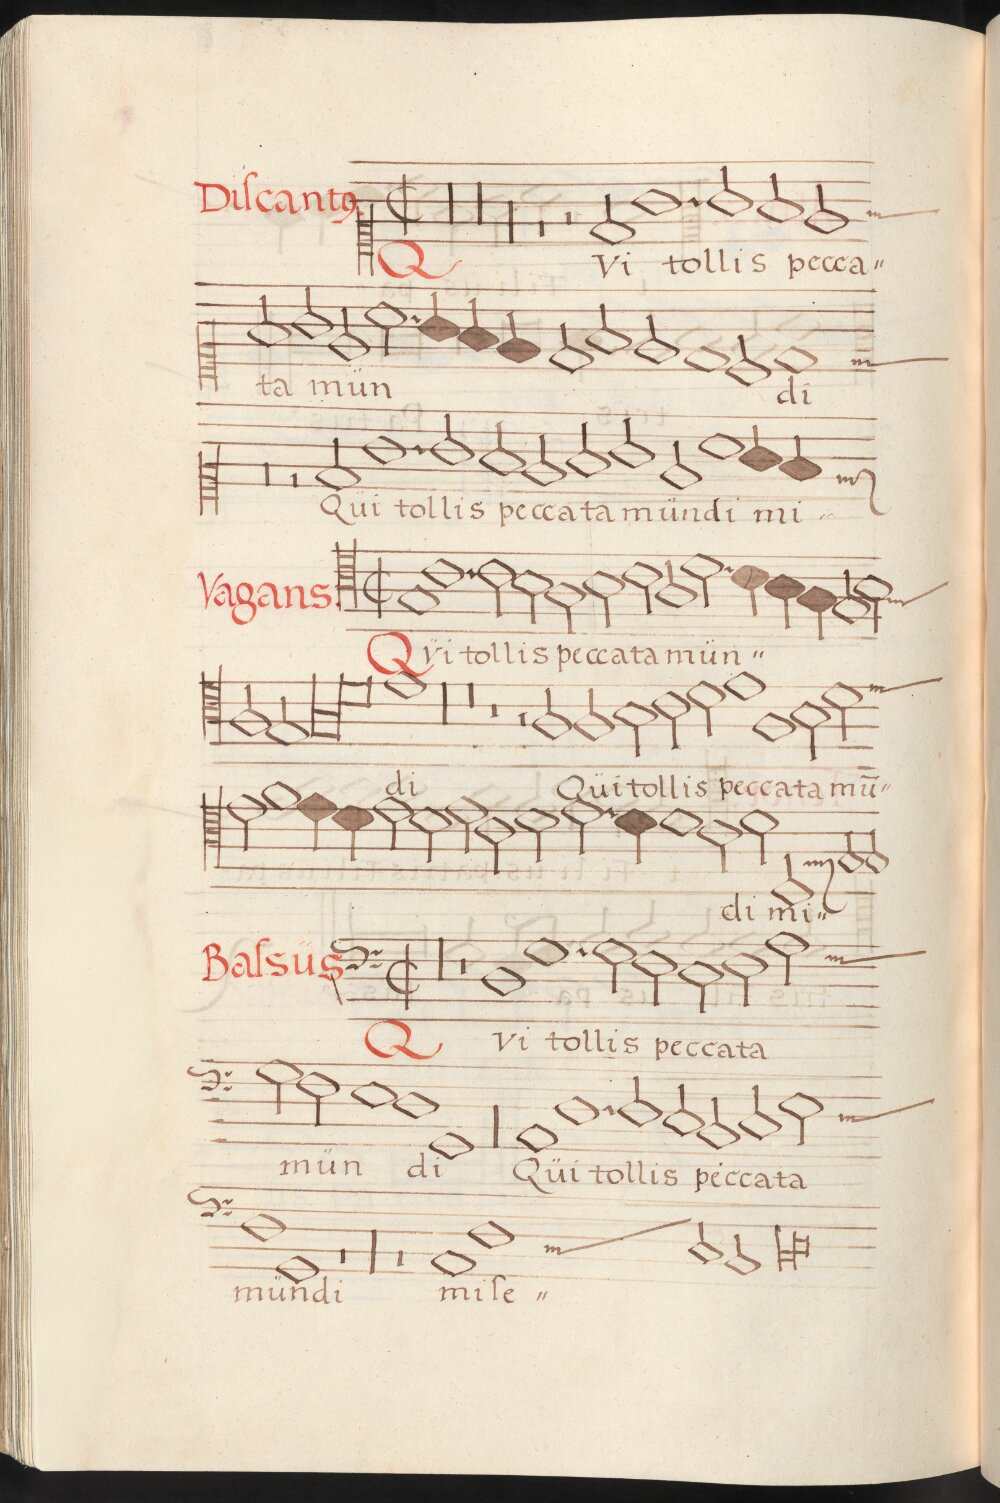 Diſcantꝯ
Q Vi tollis pecca〃
ta mün di
Qüi tollis peccata mündi mi 〃
Vagans.
QVi tollis peccata mün 〃
di Qüi tollis peccata mū〃
di mi〃
Baſsüs
Q Vi tollis peccata
mün di Qüi tollis peccata
mündi miſe 〃